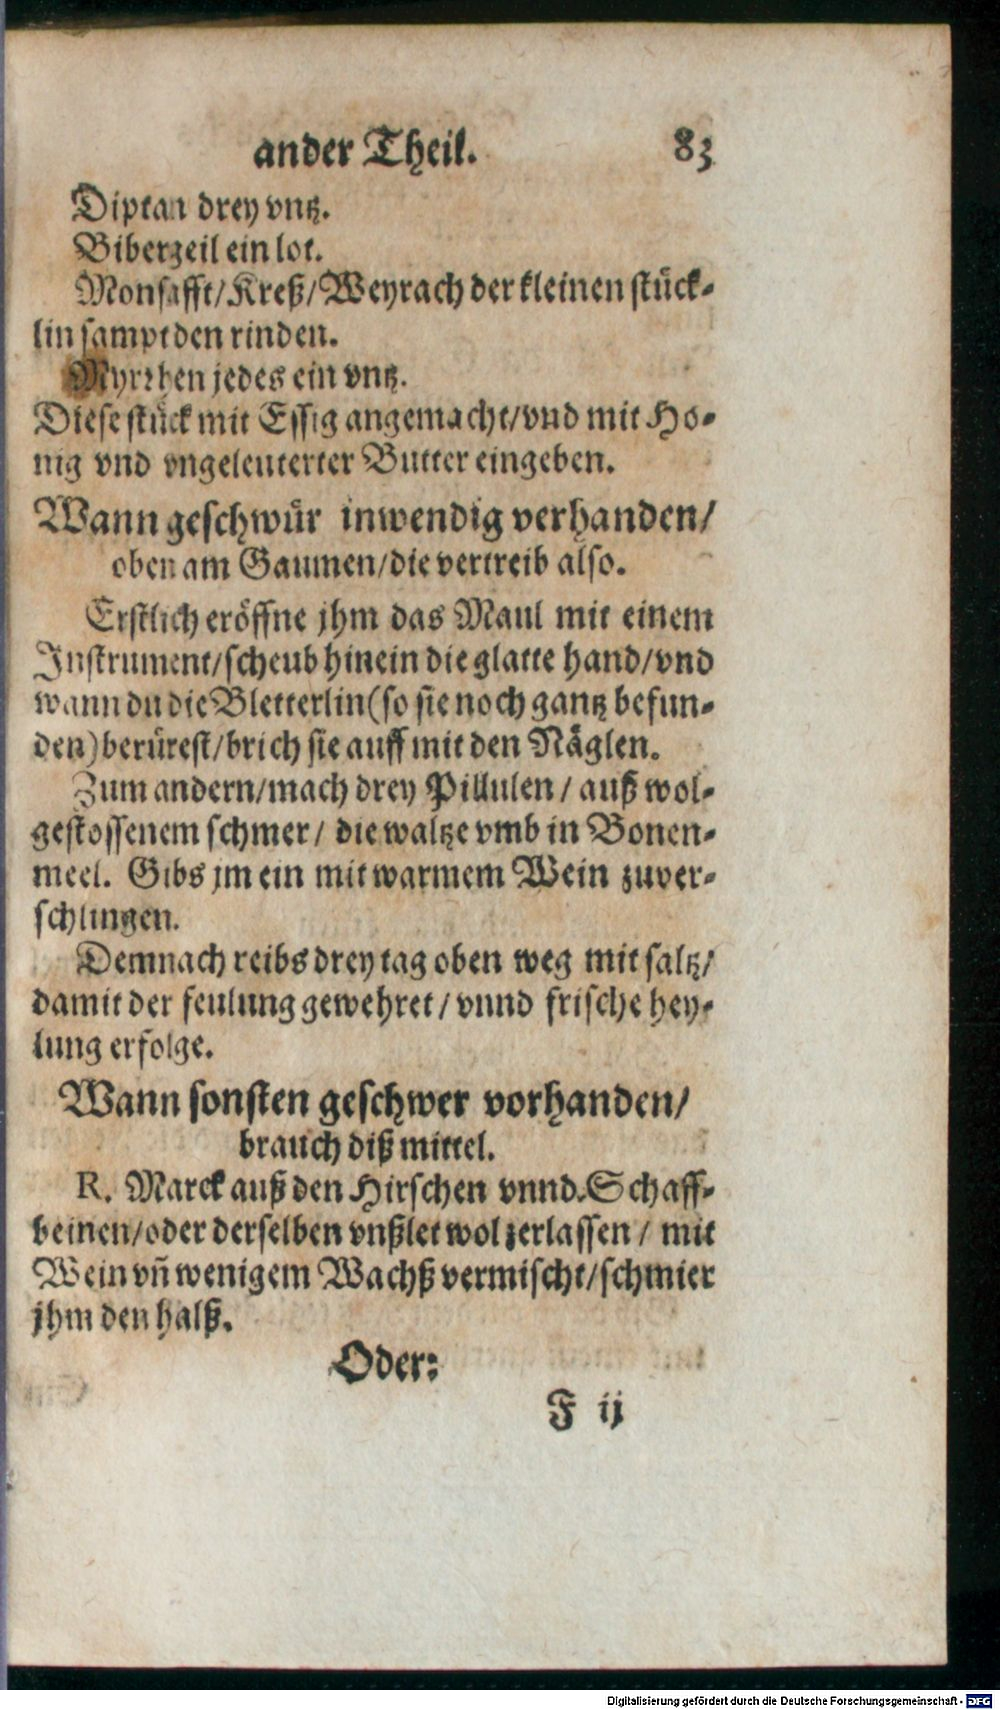 ander Theil. 83
Diptan drey vntz.
Biberzeil ein lot.
Monsafft/Kreß/Weyrach der kleinen stück-
lin sampt den rinden.
Myrrhen jedes ein vntz.
Diese stück mit Essig angemacht/vnd mit Ho-
nig vnd vngeleuterter Butter eingeben.
Wann geschwür inwendig verhanden/
oben am Gaumen/die vertreib also.
Erstlich eröffne jhm das Maul mit einem
Instrument/scheub hinein die glatte hand/vnd
wann du die Bletterlin(so sie noch gantz befun-
den)berürest/brich sie auff mit den Näglen.
Zum andern/mach drey Pillulen/ auß wol-
gestossenem schmer/ die waltze vmb in Bonen-
meel. Gibs jm ein mit warmem Wein zuver-
schlingen.
Demnach reibs drey tag oben weg mit saltz/
damit der feulung gewehret/ vnnd frische hey-
lung erfolge.
Wann sonsten geschwer vorhanden/
brauch diß mittel.
R. Marck auß den Hirschen vnnd Schaff-
beinen/oder derselben vnßlet wol zerlassen/ mit
Wein vñ wenigem Wachß vermischt/schmier
jhm den halß.
Oder:
F ij
Digitalisierung gefördert durch die Deutsche Forschungsgemeinschaft - DFG